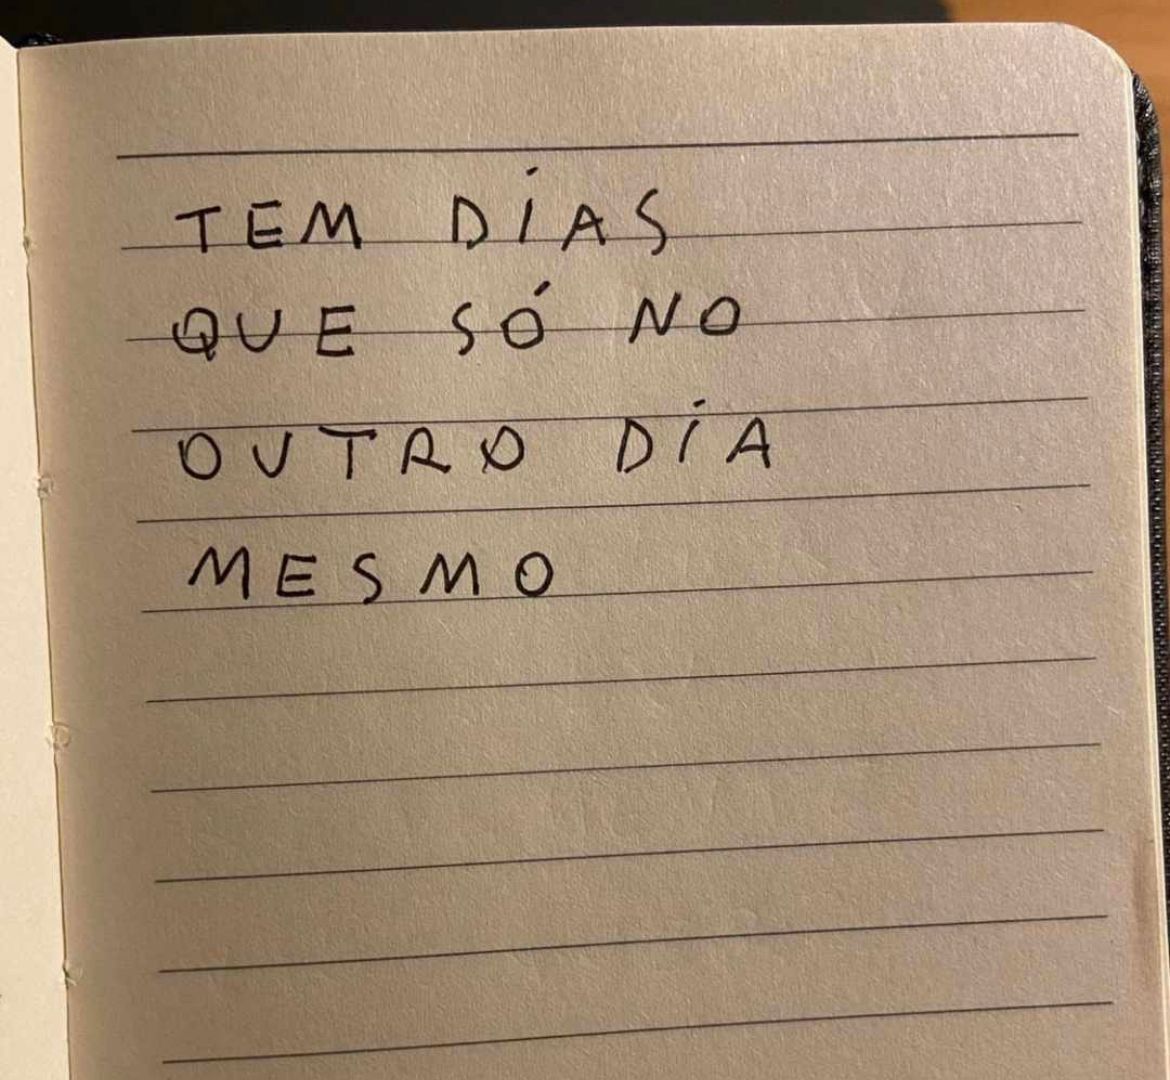 TEM DÍAS
QUE SÓ NO
OUTRO DÍA
MESMO